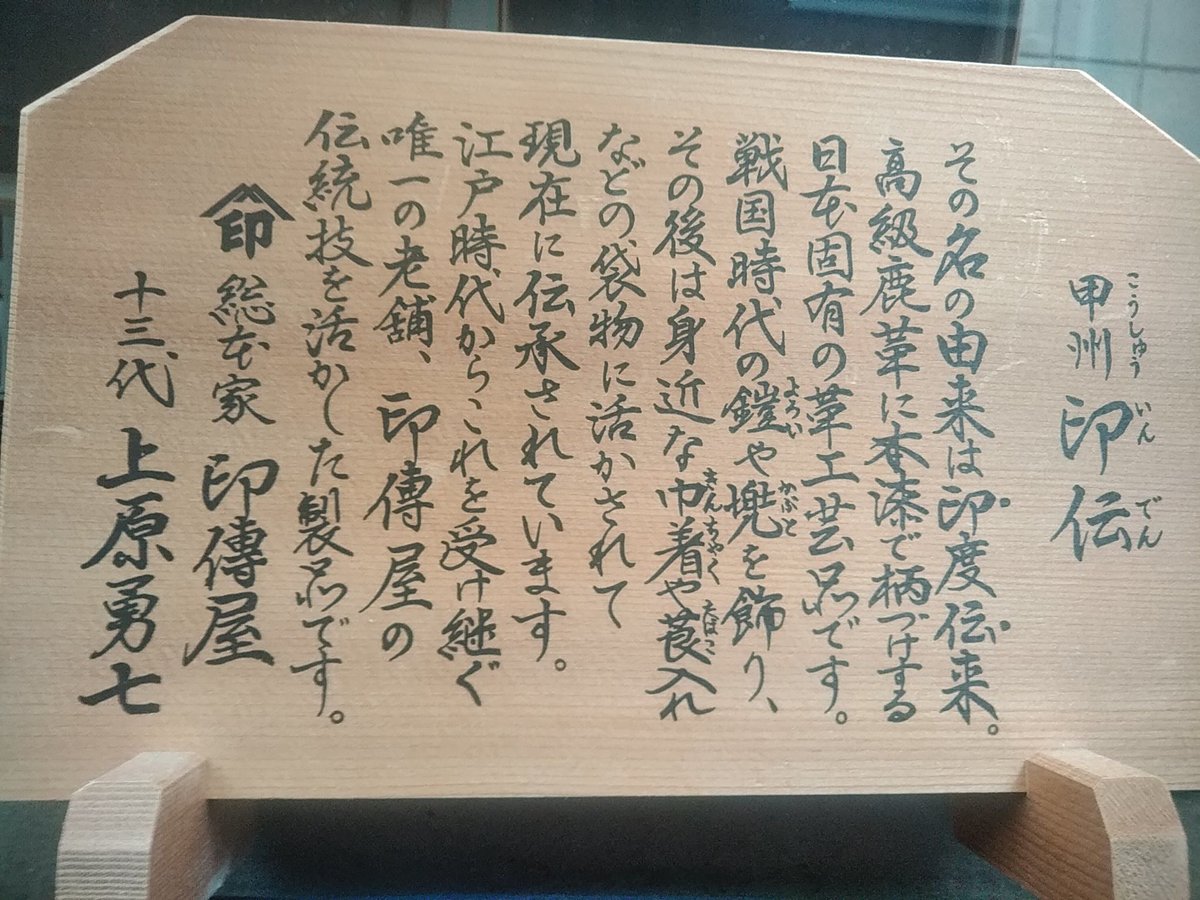 甲州印伝
こうしゅう いんでん
その名の由来は印度伝来。
高級鹿革に本漆で柄づけする
日本固有の革工芸品です。
戦国時代の鎧や兜を飾り、
よろい かぶと
その後は身近な巾着や莨入れ
きんちゃく たばこ
などの袋物に活かされて
現在に伝承されています。
江戸時代からこれを受け継ぐ
唯一の老舗、印傳屋の
伝統技を活かした製品です。
印 総本家 印傳屋
十三代 上原勇七